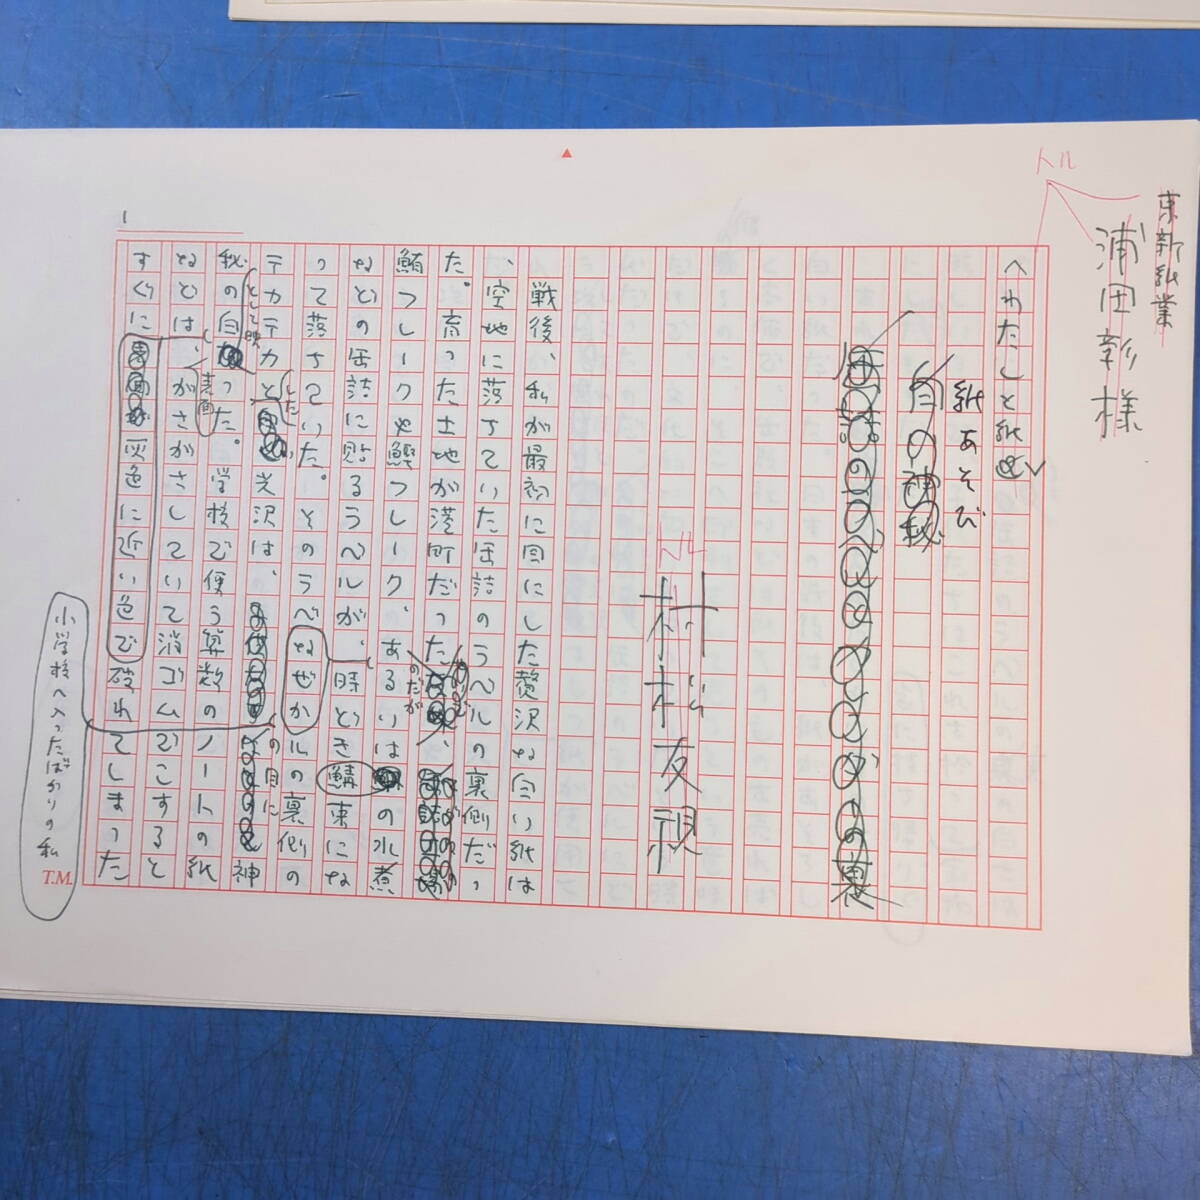 東新紙業
浦田彰様
トル
〈わたしと紙〉
紙あそび
白の神秘
トル
村松友視
戦後、私が最初に目にした贅沢な白い紙は
、空地に落ちていた缶詰のラベルの裏側だっ
た。育った土地が港町だった
のだが
鮪フレークや鰹フレーク、あるいは鯖の水煮
などの缶詰に貼るラベルが、時どき束にな
って落ちていた。そのラベルの裏側の
なぜか
テカテカとした光沢は、
の目に
神
秘の白
として映
った。学校で使う算数のノートの紙
などは、
表面
がさがさしていて消ゴムでこすると
すぐに
灰色に近い色で
破れてしまった
小学校へ入ったばかりの私
1
T.M.